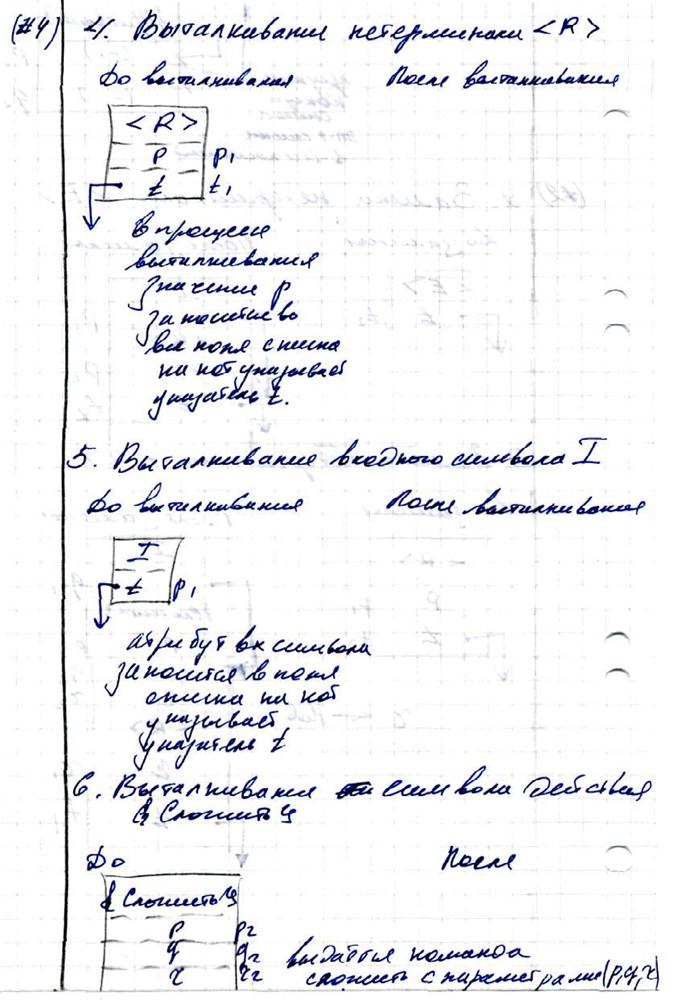 (#4) 4. Выталкивание нетерминала <R>
До выталкивания После выталкивания
<R>
p p1
t t1
В процессе
выталкивания
значение p
заносится во
все поля списка
на кот указывает
указатель t.
5. Выталкивание входного символа I
До выталкивания После выталкивания
I
t p1
атрибут вх символа
заносится в поля
списка на кот
указывает
указатель t
6. Выталкивание символа действия
{Сложить}
До После
{Сложить}
p p2
q q2 выдаётся команда
r r2 сложить с параметрами (p,q,r)